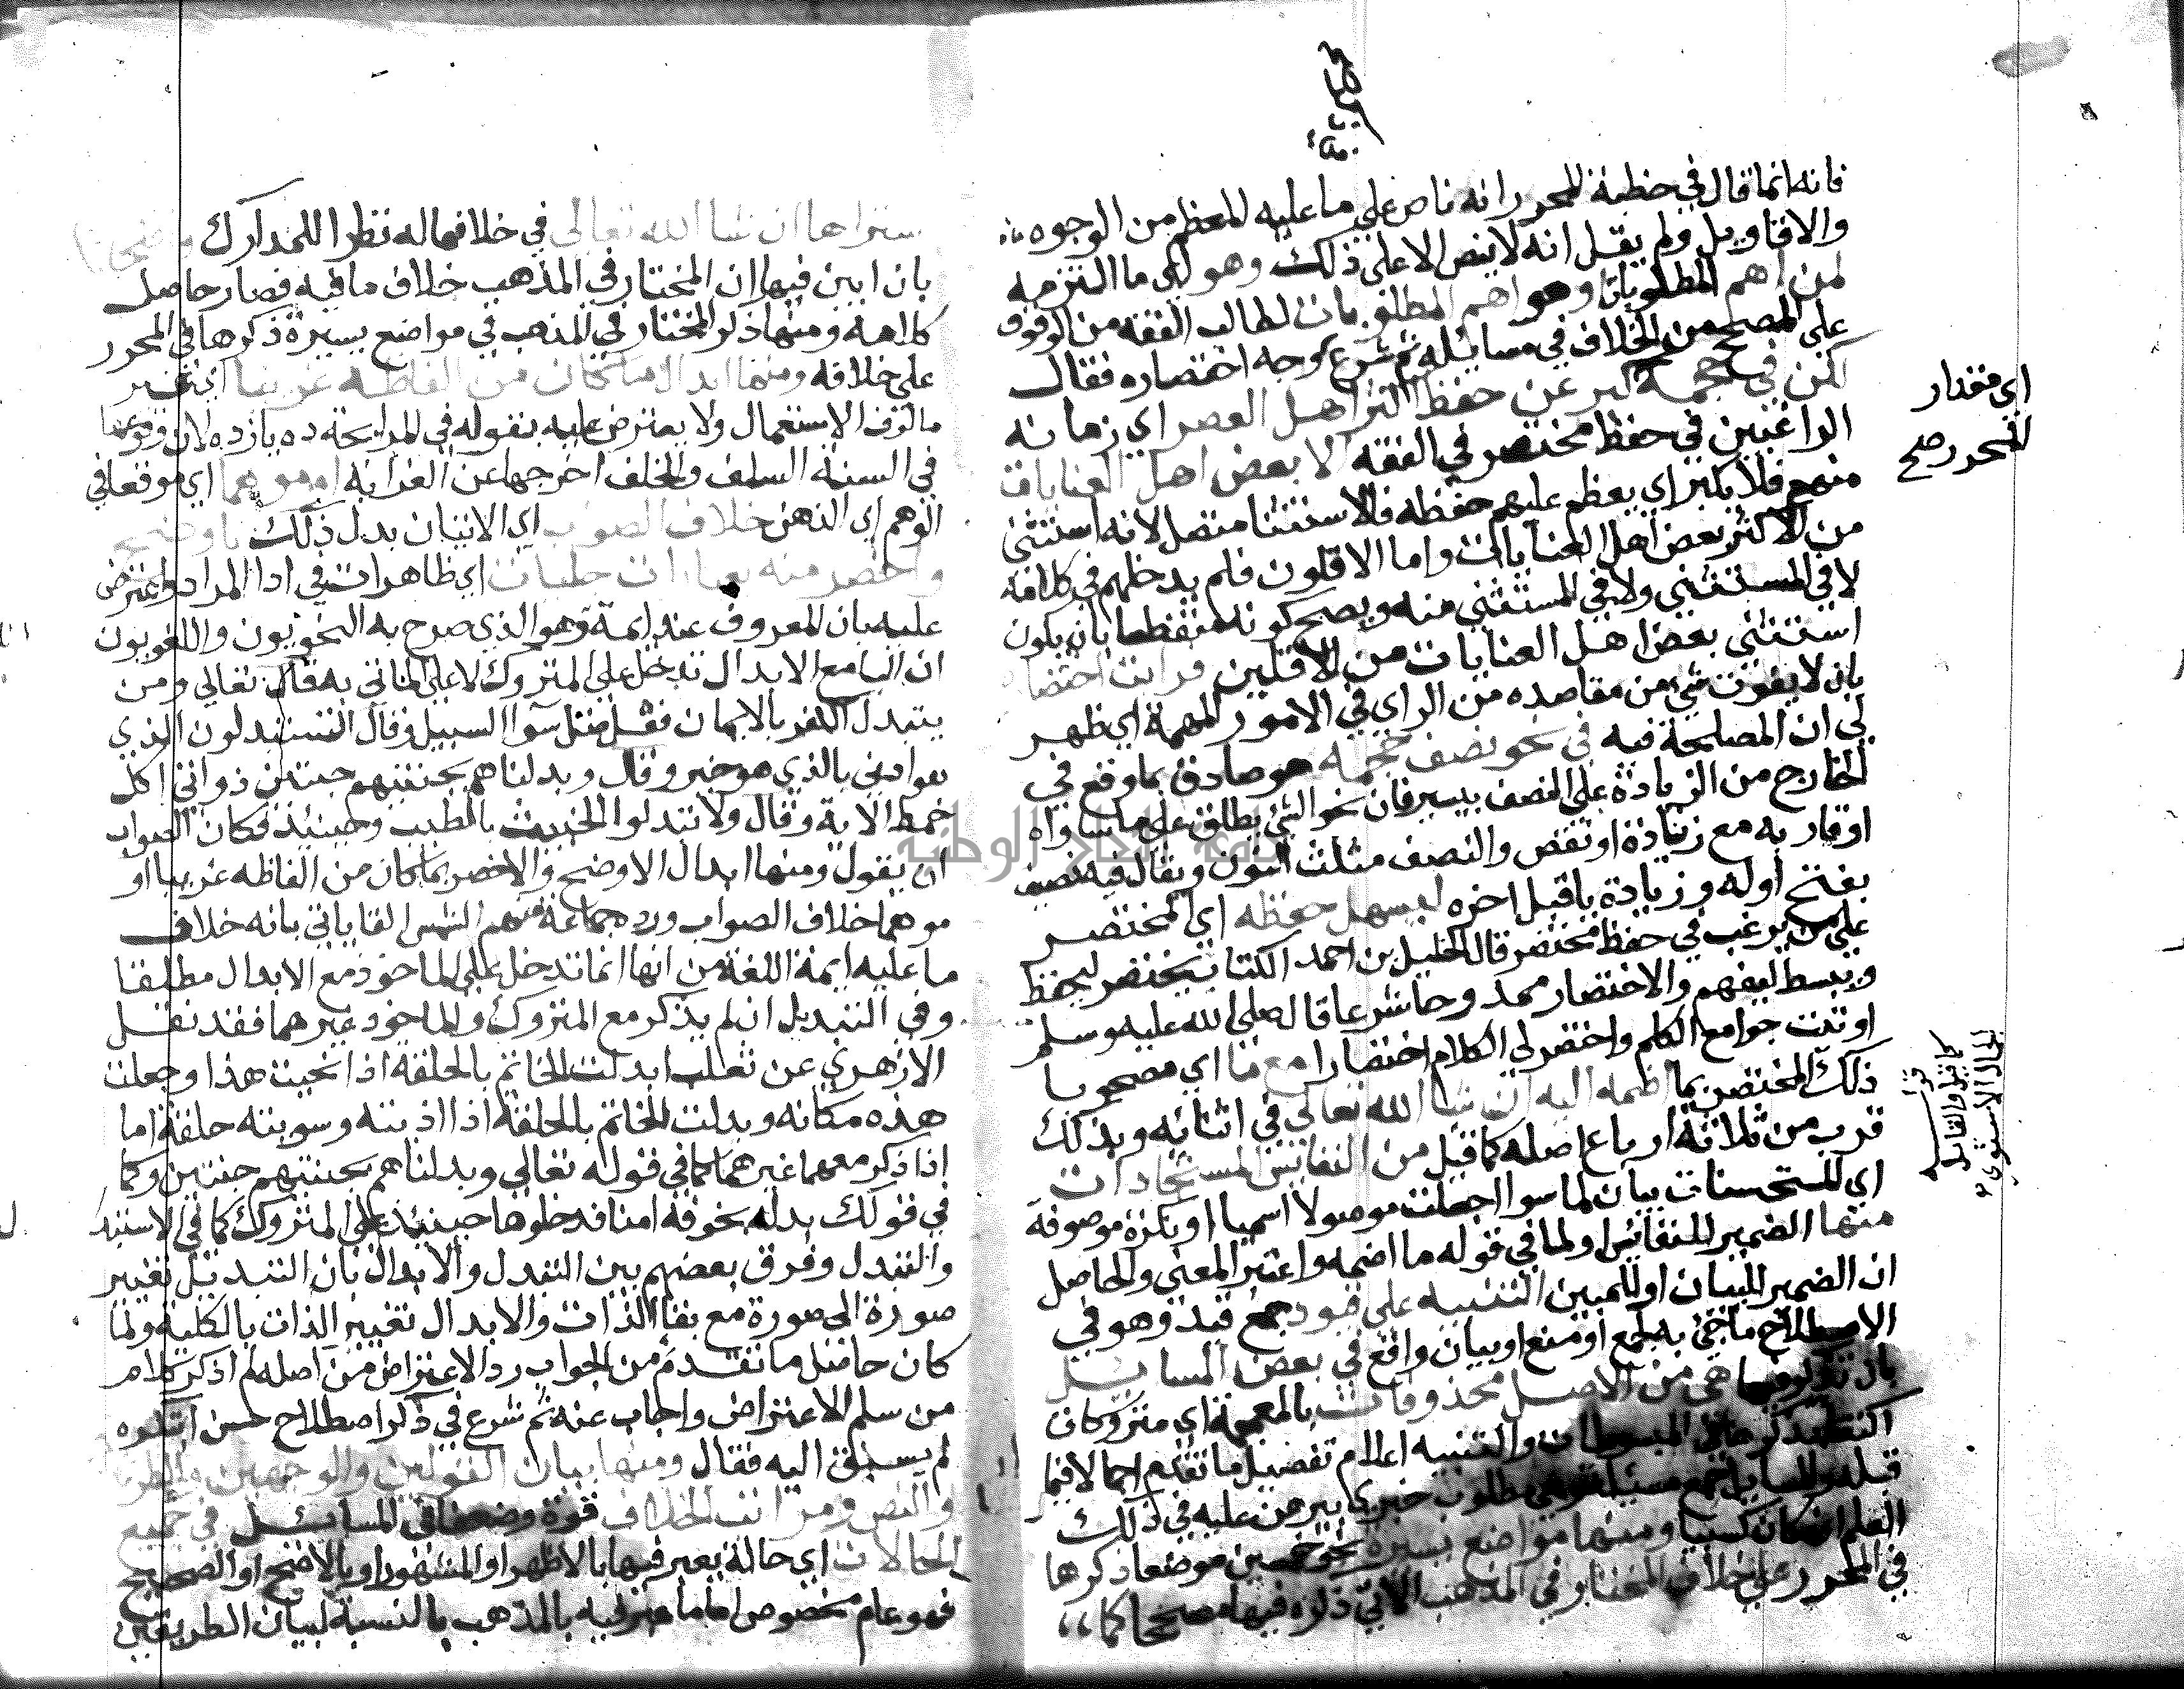 فانه انما قال في خطبة المحرر انه ناص على ما عليه المعظم من الوجوه
والاقاويل ولم يقل انه لا ينص الا على ذلك وهو اي ما التزمه
من اهم المطلوبات وهو اهم المطلوبات لطالب الفقه من الوقوف
على المصحح من الخلاف في مسايله ثم شرع وجه اختصاره فقال
لكن في حجمه كبر عن حفظ اكثر اهل العصر اي زمانه
الراغبين في حفظ مختصر في الفقه الا بعض اهل العنايات
منهم فلا يكبر اي يعظم عليهم حفظه فالاستثنا متصل لانه استثنى
من الاكثر بعض اهل العنايات واما الاقلون فلم يدخلهم في كلامه
لا في المستثنى ولا في المستثنى منه ويصح كونه منقطعا بان يكون
استثنى بعض اهل العنايات من الاقلين فرايت اختصا
بان لا يفوت شي من مقاصده من الراي في الامور المهمة اي ظهر
لي ان المصلحة فيه في نحو نصف حجمه هو صادق بما وقع في
الخارج من الزيادة على النصف بيسير فان نحو الشي يطلق على ما ساواه
او قاربه مع زيادة او نقص والنصف مثلث النون ويقال فيه نصيف
بفتح اوله وزيادة يا قبل اخره ليسهل حفظه اي المختصر
على من يرغب في حفظ مختصر قال الخليل بن احمد الكتاب يختصر ليحفظ
ويبسط ليفهم والاختصار ممدوحا شرعا قال صلى الله عليه وسلم
اوتيت جوامع الكلم واختصر لي الكلام اختصارا مع ما اي مصحوبا
ذلك المختصر بما اضمه اليه ان شا الله تعالى في اثنائه وبذلك
قرب من ثلاثة ارباع اصله كما قيل من النفايس المستجادات
اي المستحسنات بيان لما سوا اجعلت موصولا اسميا او نكرة موصوفة
منها الضمير للنفائس او لما في قوله ما اضمه واعتبر المعنى والحاصل
ان الضمير للبيان او للمبين التنبيه على قيود جمع قيد وهو في
الاصطلاح ما جئ به لجمع او منع او بيان واقع في بعض المسايل
بان تذكر فيها هي من الاصل محذوفات بالمعجمة اي متروكات
المبسوطات والتنبيه اعلام تفصيل ما تقدم اجمالا فيما
قبله والمسايل جمع مسئلة وهي مطلوب خبري يبرهن عليه في ذلك
العلم ان كان كسبيا ومنها مواضع يسيرة نحو خمسين موضعا ذكرها
في المحرر على خلاف المختار في المذهب الاتي ذكره فيها مصححا كما
اي مقدار
المحرر صح
كما قيل والقايل
الجمال الاسنوي
ستراها ان شا الله تعالى في خلافها له نظرا للمدارك
بان ابين فيها ان المختار في المذهب خلاف ما فيه فصار حاصل
كلامه ومنها ذكر المختار في المذهب في مواضع يسيرة ذكرها في المحرر
على خلافه ومنها ابدال ما كان من الفاظه غريبا اي غير
مالوف الاستعمال ولا يعترض عليه بقوله في المرابحة ده يازده لان وقوعها
في السنة السلف والخلف اخرجها عن الغرابة او موهما اي موقعا في
الوهم اي الذهن خلاف الصواب اي الاتيان بدل ذلك باوضح
واخصر منه بعبارات جليات اي ظاهرات في ادا المراد واعترض
عليه بان المعروف عند ايمة وهو الذي صرح به النحويون واللغويون
ان البا مع الابدال تدخل على المتروك لا على الماتي به قال تعالى ومن
يتبدل الكفر بالايمان فقد ضل سوا السبيل وقال اتستبدلون الذي
هو ادنى بالذي هو خير وقال وبدلناهم بجنتيهم جنتين ذواتي اكل
خمط الاية وقال ولا تتبدلوا الخبيث بالطيب وحينئذ فكان الصواب
ان يقول ومنها ابدال الاوضح والاخصر بما كان من الفاظه غريبا او
موهما خلاف الصواب ورده جماعة منهم الشمس القاياتي بانه خلاف
ما عليه ايمة اللغة من انها انما تدخل على الماخوذ مع الابدال مطلقا
وفي التبديل ان لم يذكر مع المتروك والماخوذ غيرهما فقد نقل
الازهري عن ثعلب ابدلت الخاتم بالحلقة اذا نحيت هذا وجعلت
هذه مكانه وبدلت الخاتم بالحلقة اذا اذبته وسويته حلقة اما
اذا ذكر معهما غيرهما كما في قوله تعالى وبدلناهم بجنتيهم جنتين وكما
في قولك بدله بخوفه امنا فدخلوها حينئذ على المتروك كما في الاستبد
والتبدل وفرق بعضهم بين التبدل والابدال بان التبديل تغيير
صورة الى صورة مع بقا الذات والابدال تغيير الذات بالكلية ولما
كان حاصل ما تقدم من الجواب رد الاعتراض من اصله لم اذكر كلام
من سلم الاعتراض واجاب عنه ثم شرع في ذكر اصطلاح حسن ابتكره
لم يسبق اليه فقال ومنها بيان القولين والوجهين والطر
والنص ومراتب الخلاف قوة وضعفا في المسايل في جميع
الحالات اي حالة يعبر فيها بالاظهر او المشهور او بالاصح او الصحيح
فهو عام مخصوص اما ما عبر فيه بالمذهب بالنسبة لبيان الطريقين